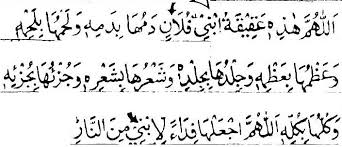 اَللّٰهُمَّ هٰذِهٖ عَقِيْقَةُ ابْنِيْ فُلَانٍ دَمُهَا بِدَمِهٖ وَلَحْمُهَا بِلَحْمِهٖ
وَعَظْمُهَا بِعَظْمِهٖ وَجِلْدُهَا بِجِلْدِهٖ وَشَعْرُهَا بِشَعْرِهٖ وَجُزْئُهَا بِجُزْئِهٖ
وَكُلُّهَا بِكُلِّهٖ اَللّٰهُمَّ اجْعَلْهَا فِدَاءً لِابْنِيْ مِنَ النَّارِ